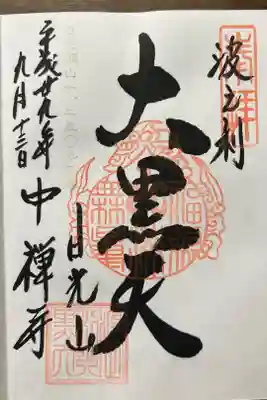 奉拝
波之利
大黒天
日光山
中禪寺
平成廿九年
九月十三日